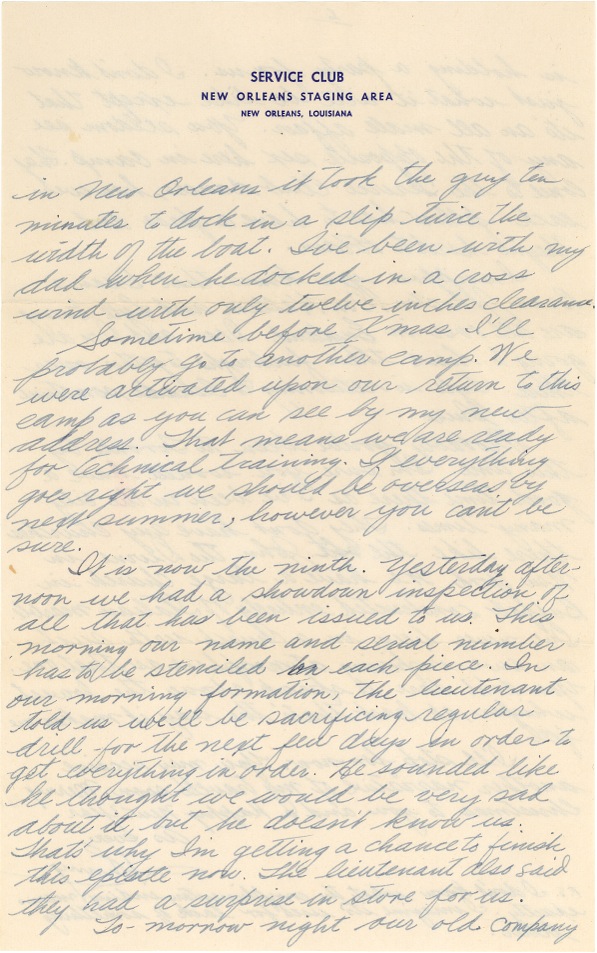 SERVICE CLUB
NEW ORLEANS STAGING AREA
NEW ORLEANS, LOUISIANA
in New Orleans it took the guy ten
minutes to dock in a slip twice the
width of the boat. I've been with my
dad when he docked in a cross
wind with only twelve inches clearance.
Sometime before Xmas I'll
probably go to another camp. We
were activated upon our return to this
camp as you can see by my new
address. That means we are ready
for technical training. If everything
goes right we should be overseas by
next summer, however you can't be
sure.
It is now the ninth. Yesterday after-
noon we had a showdown inspection of
all that has been issued to us. This
morning our name and serial number
has to be stenciled on each piece. In
our morning formation, the lieutenant
told us we'll be sacrificing regular
drill for the next few days in order to
get everything in order. He sounded like
he thought we would be very sad
about it, but he doesn't know us.
That's why I'm getting a chance to finish
this epistle now. The lieutenant also said
they had a surprise in store for us.
To-morrow night our old company